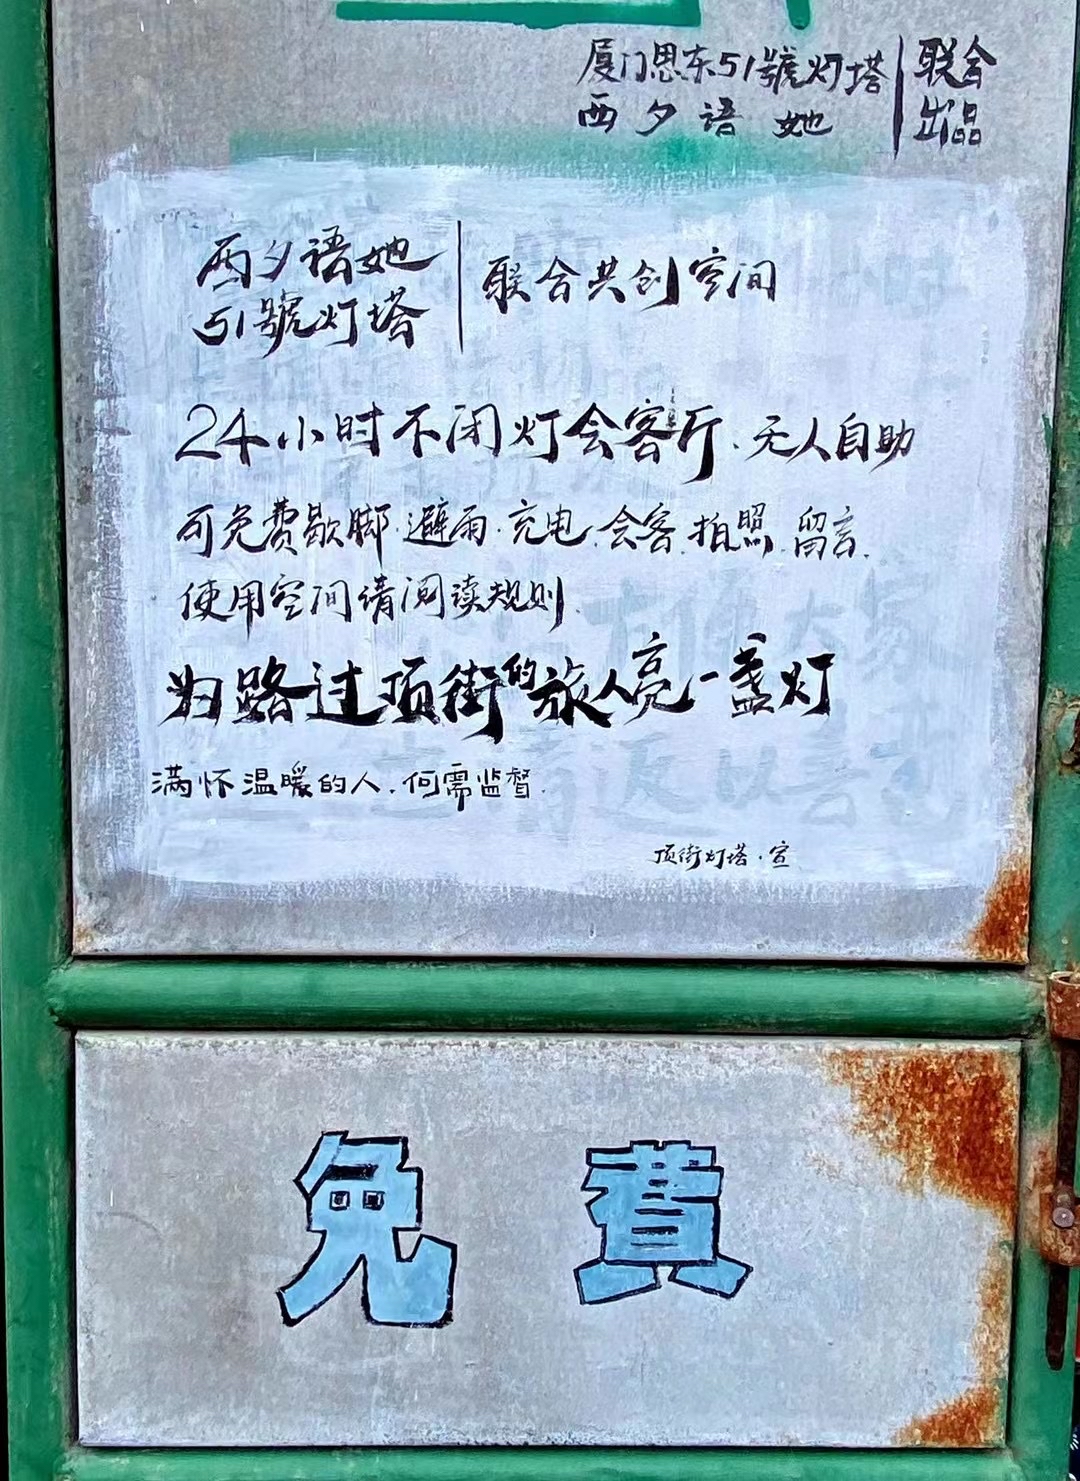 厦门思东51號灯塔 | 联合
西夕语她 | 出品
西夕语她
51號灯塔 | 联合共创空间
24小时不闭灯会客厅·无人自助
可免费歇脚·避雨·充电·会客·拍照·留言.
使用空间请阅读规则.
为路过顶街的旅人亮一盏灯
满怀温暖的人.何需监督.
顶街灯塔·宣
免費